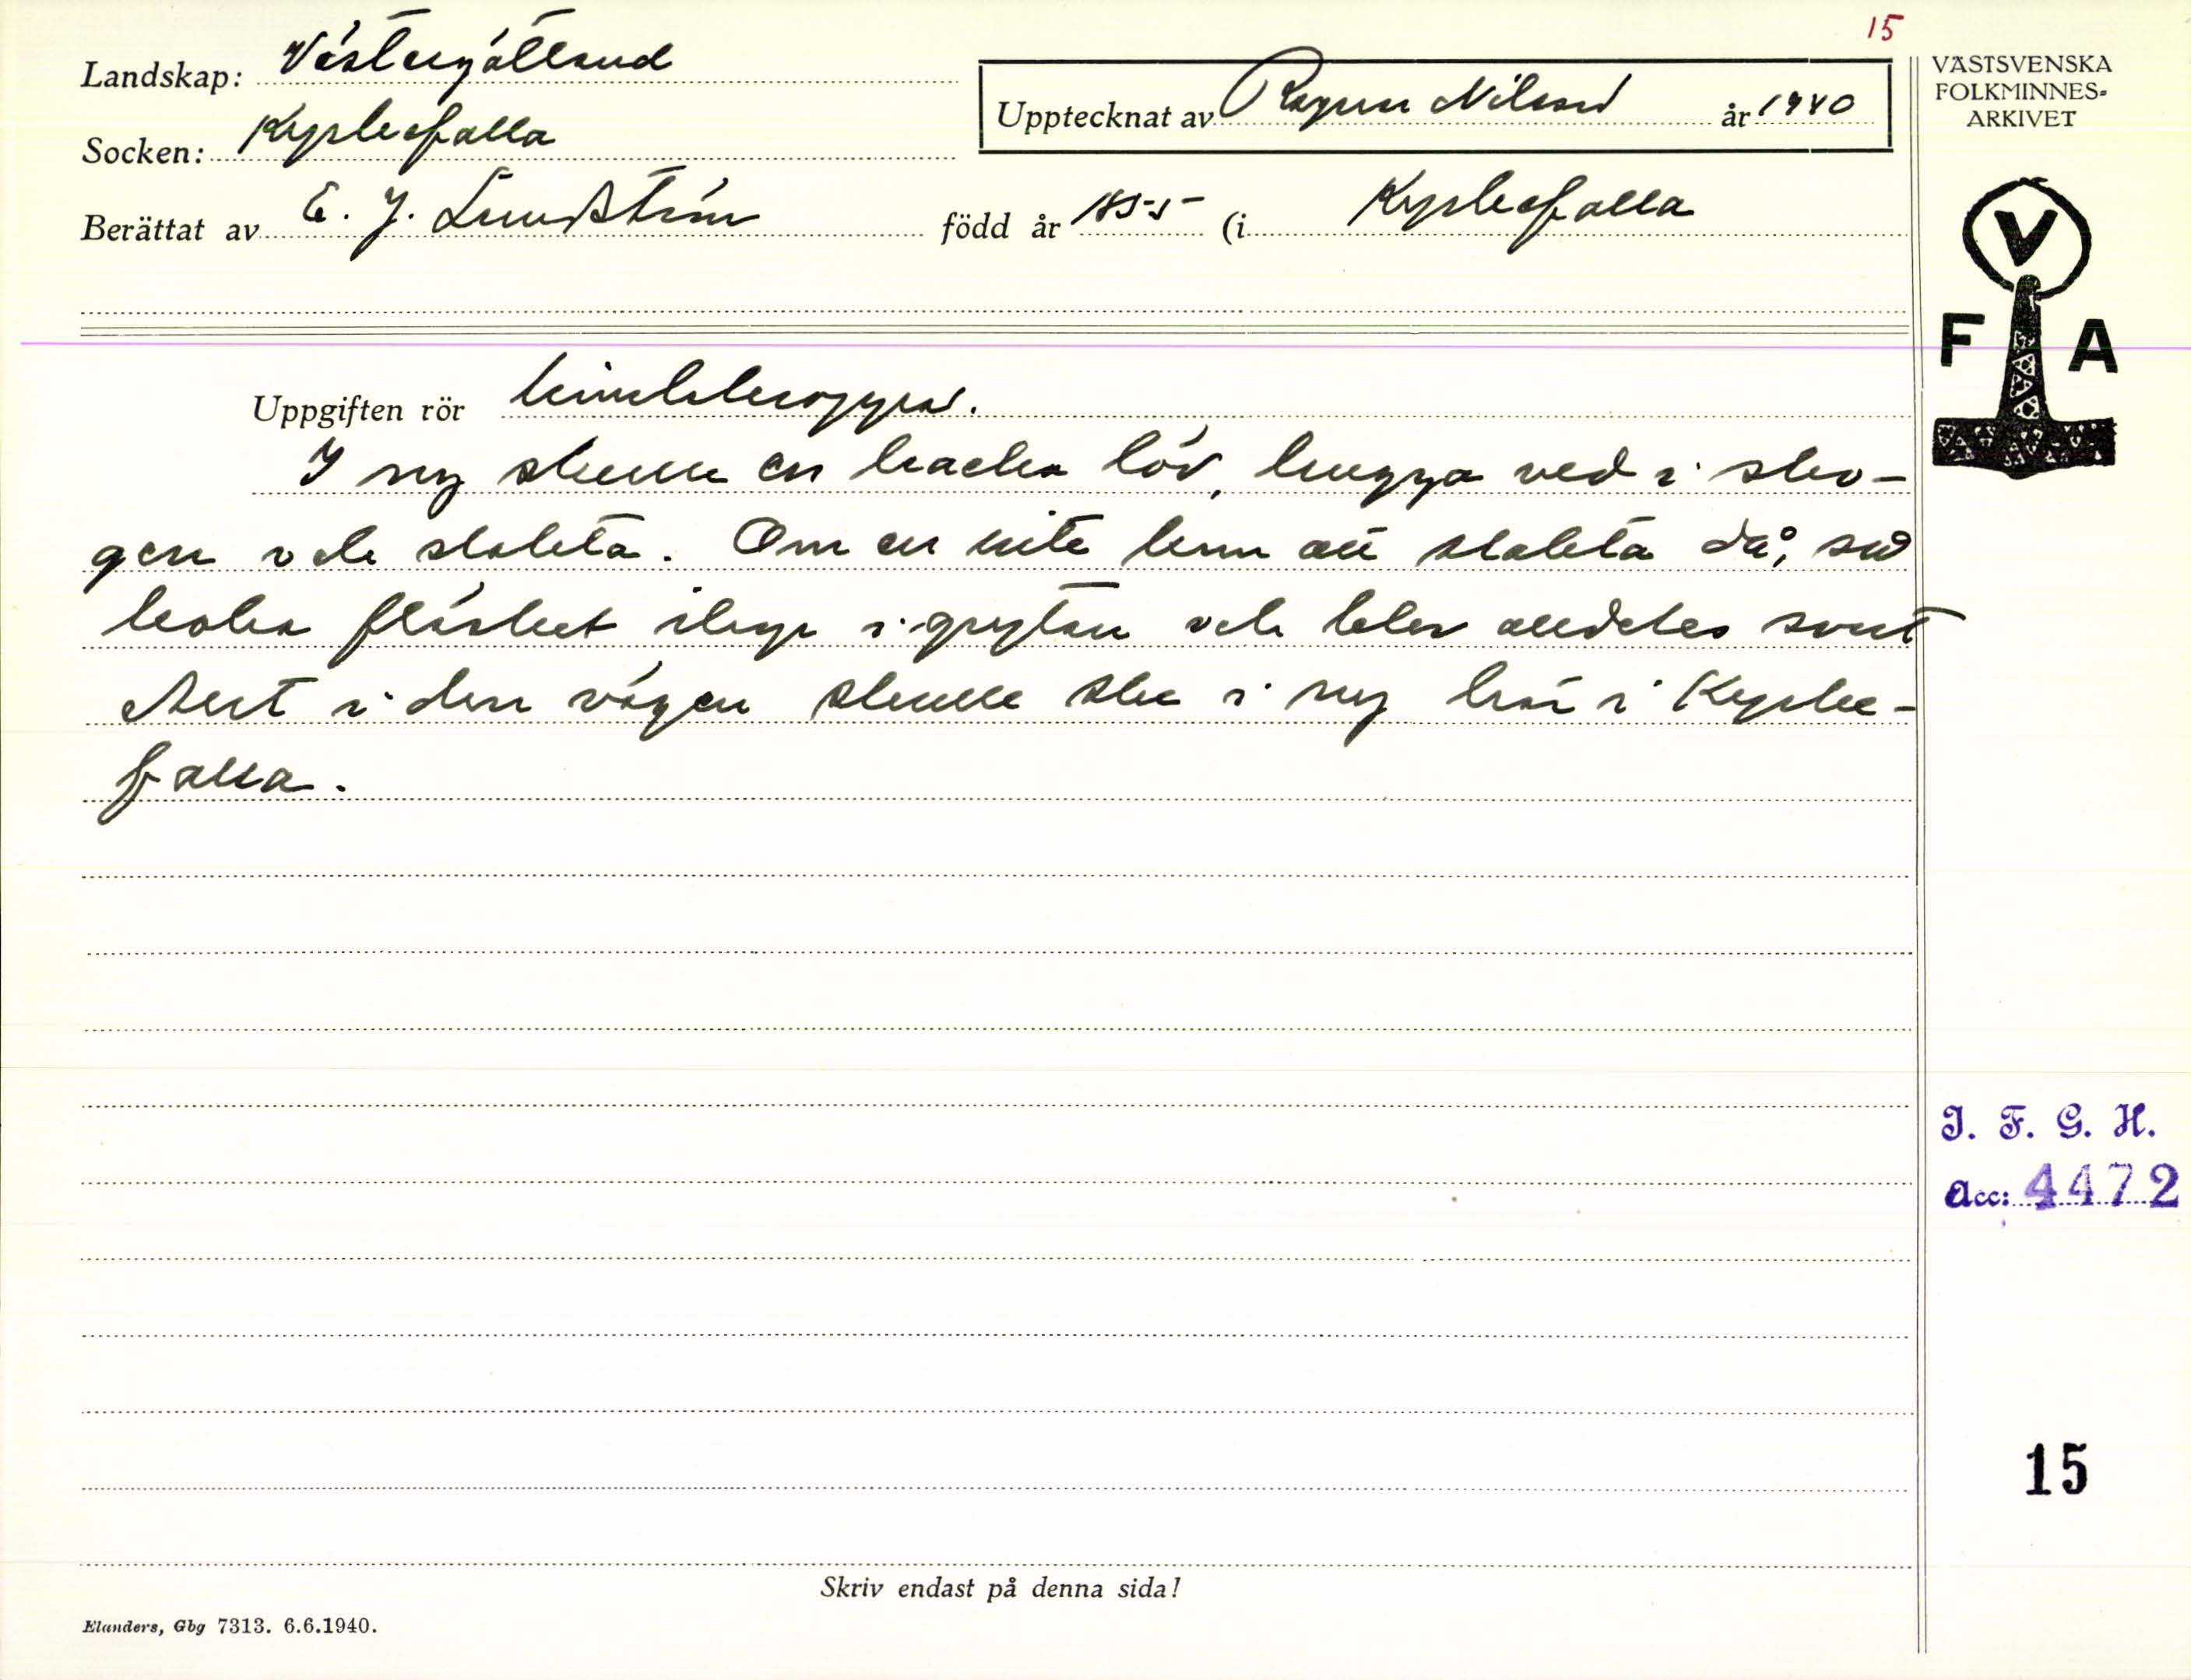 15
Landskap: Västergötland
Socken: Kyrkefalla
Upptecknat av Ragnar Nilsson år 1940
Berättat av E. J. Lundström född år 1855 (i Kyrkefalla
VÄSTSVENSKA
FOLKMINNES-
ARKIVET
V
F A
Uppgiften rör himlakroppar.
I ny skulle en hacka löv, hugga ved i sko-
gen och slakta. Om en inte hann att slakta då, så
koka fläsket ihop i grytan och blev alldeles svart
Allt i den vägen skulle ske i ny här i Kyrke-
falla.
I. F. G. H.
Acc: 4472
15
Skriv endast på denna sida!
Elanders, Gbg 7313. 6.6.1940.